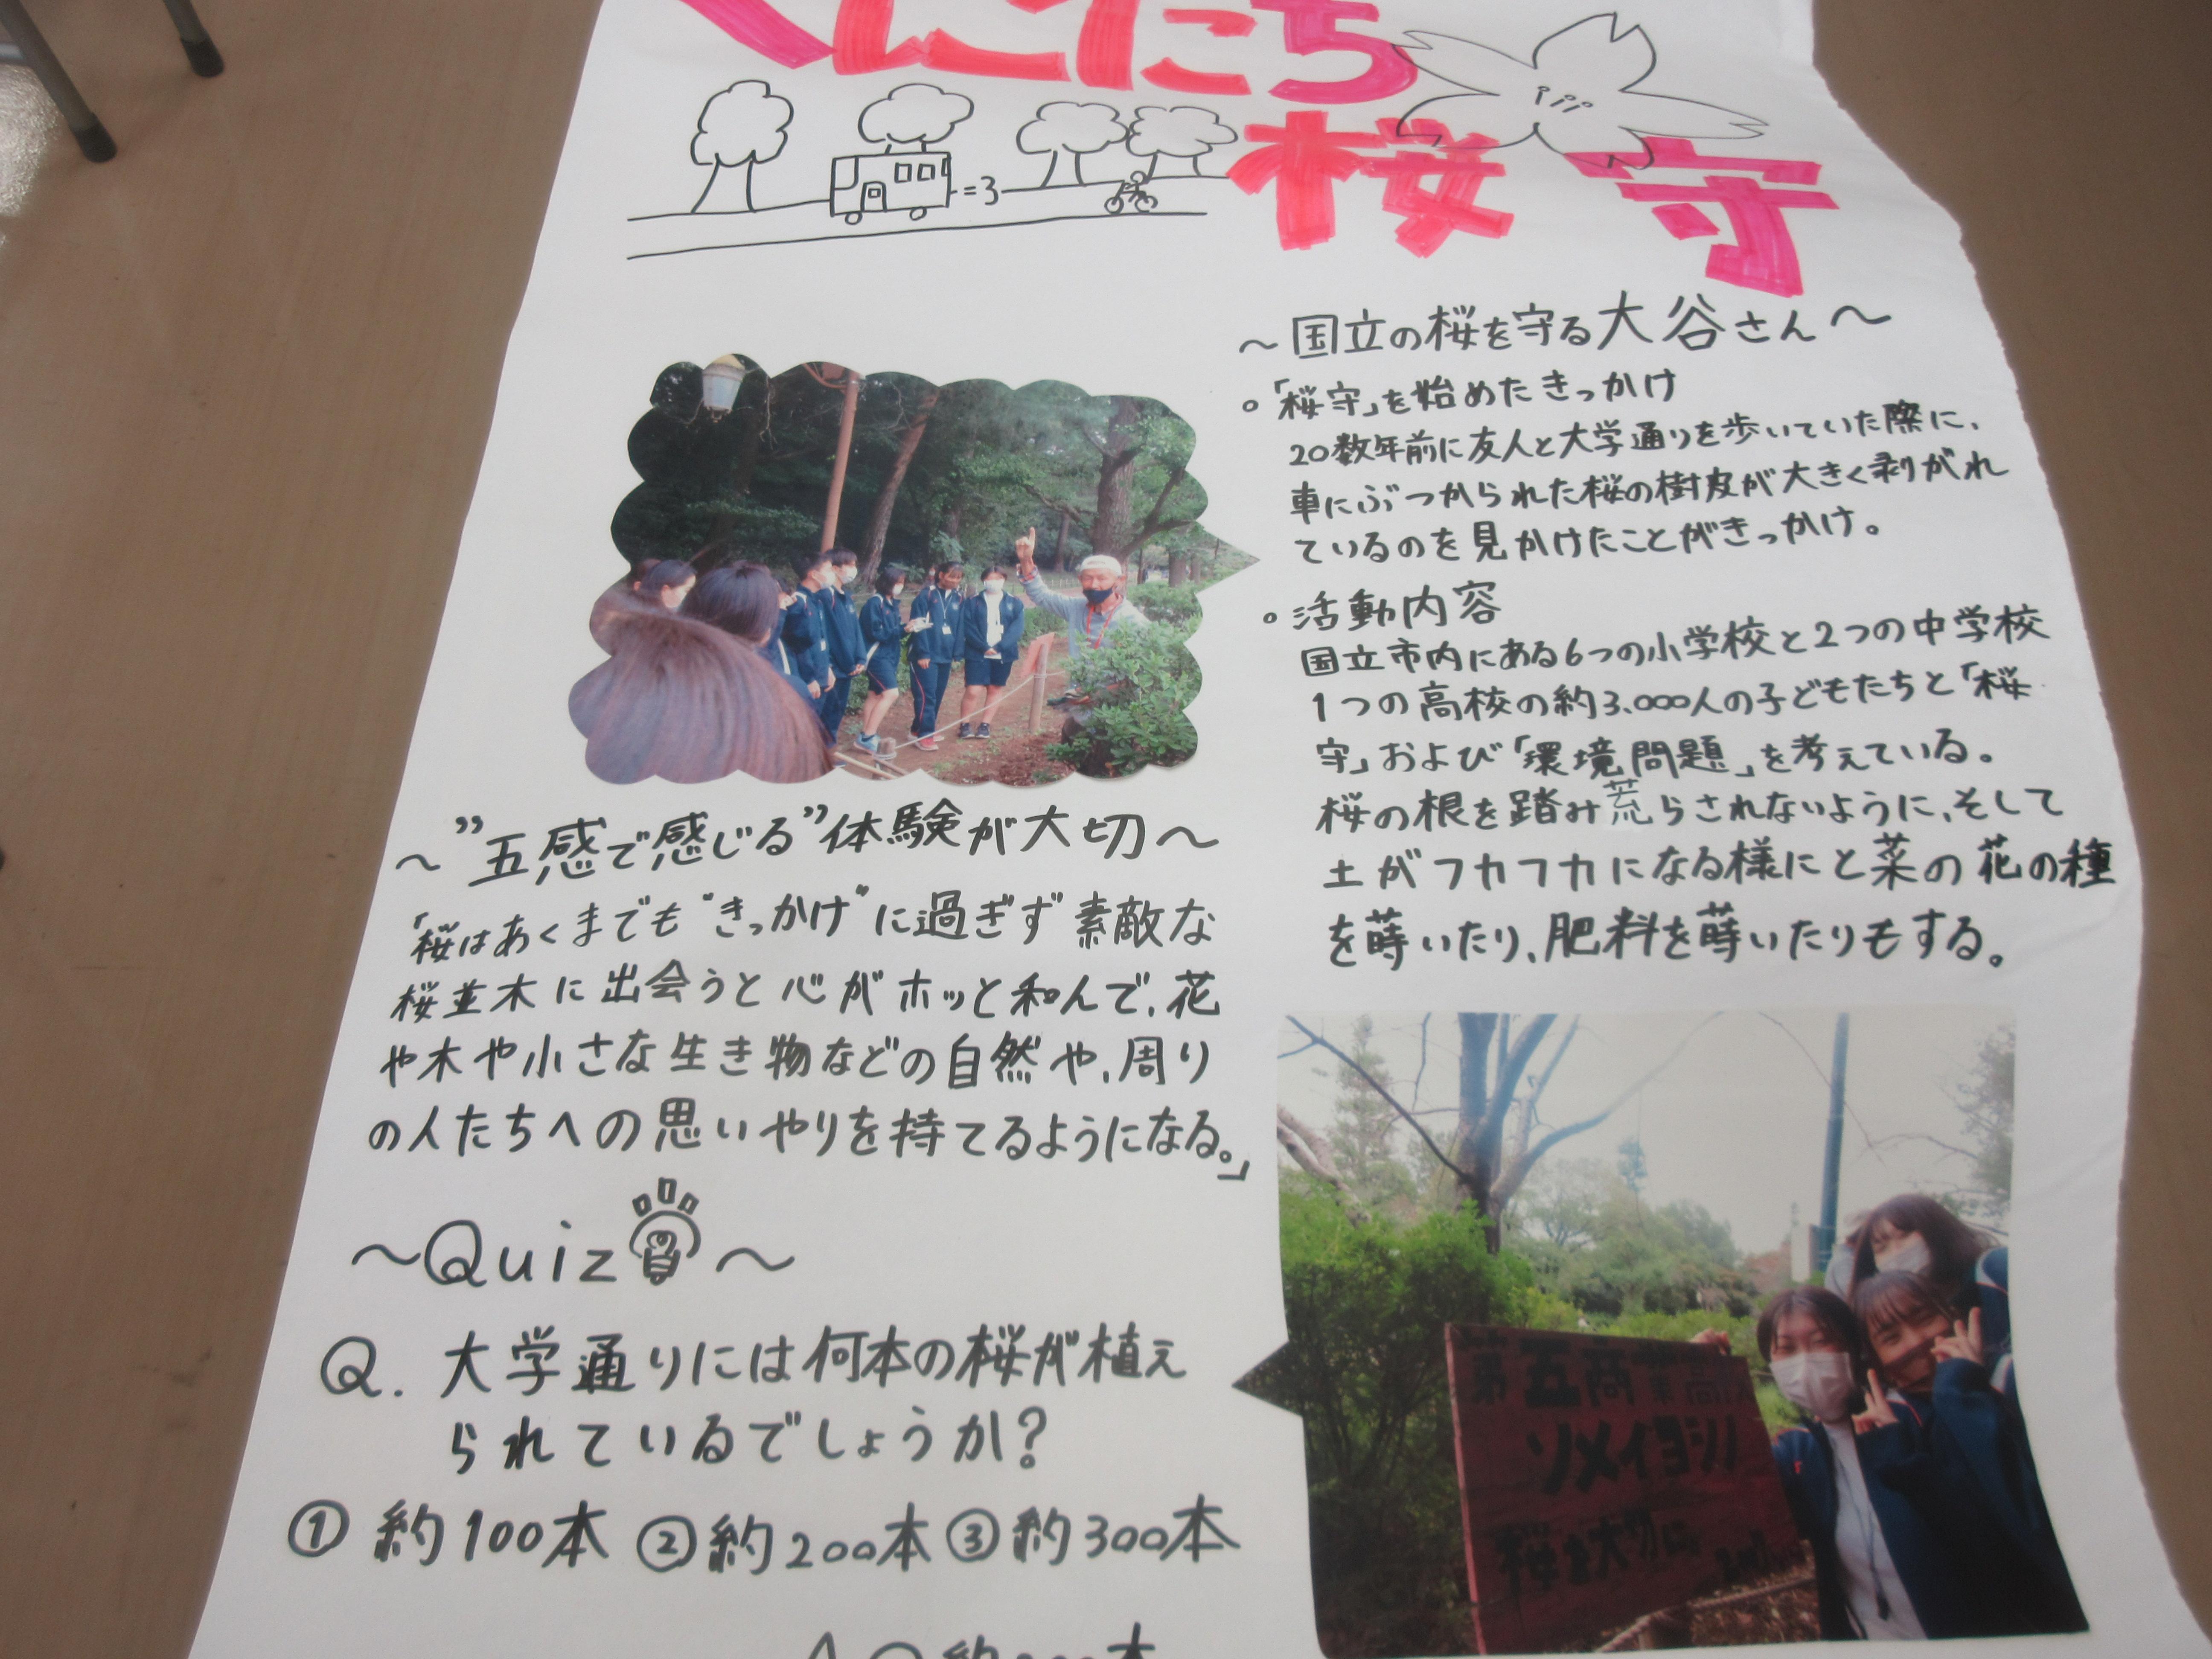 くにたち
桜守
~国立の桜を守る大谷さん~
。「桜守」を始めたきっかけ
20数年前に友人と大学通りを歩いていた際に、
車にぶつかられた桜の樹皮が大きく剥がれ
ているのを見かけたことがきっかけ。
。活動内容
国立市内にある6つの小学校と2つの中学校
1つの高校の約3,000人の子どもたちと「桜
守」および「環境問題」を考えている。
桜の根を踏み荒らされないように、そして
土がフカフカになる様にと菜の花の種
を蒔いたり、肥料を蒔いたりもする。
~"五感で感じる"体験が大切~
「桜はあくまでも"きっかけ"に過ぎず素敵な
桜並木に出会うと心がホッと和んで、花
や木や小さな生き物などの自然や、周り
の人たちへの思いやりを持てるようになる。」
~Quiz~
Q. 大学通りには何本の桜が植え
られているでしょうか?
① 約100本 ② 約200本 ③ 約300本
第五商業高校
ソメイヨシノ
桜を大切に